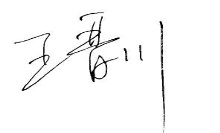 王晋川